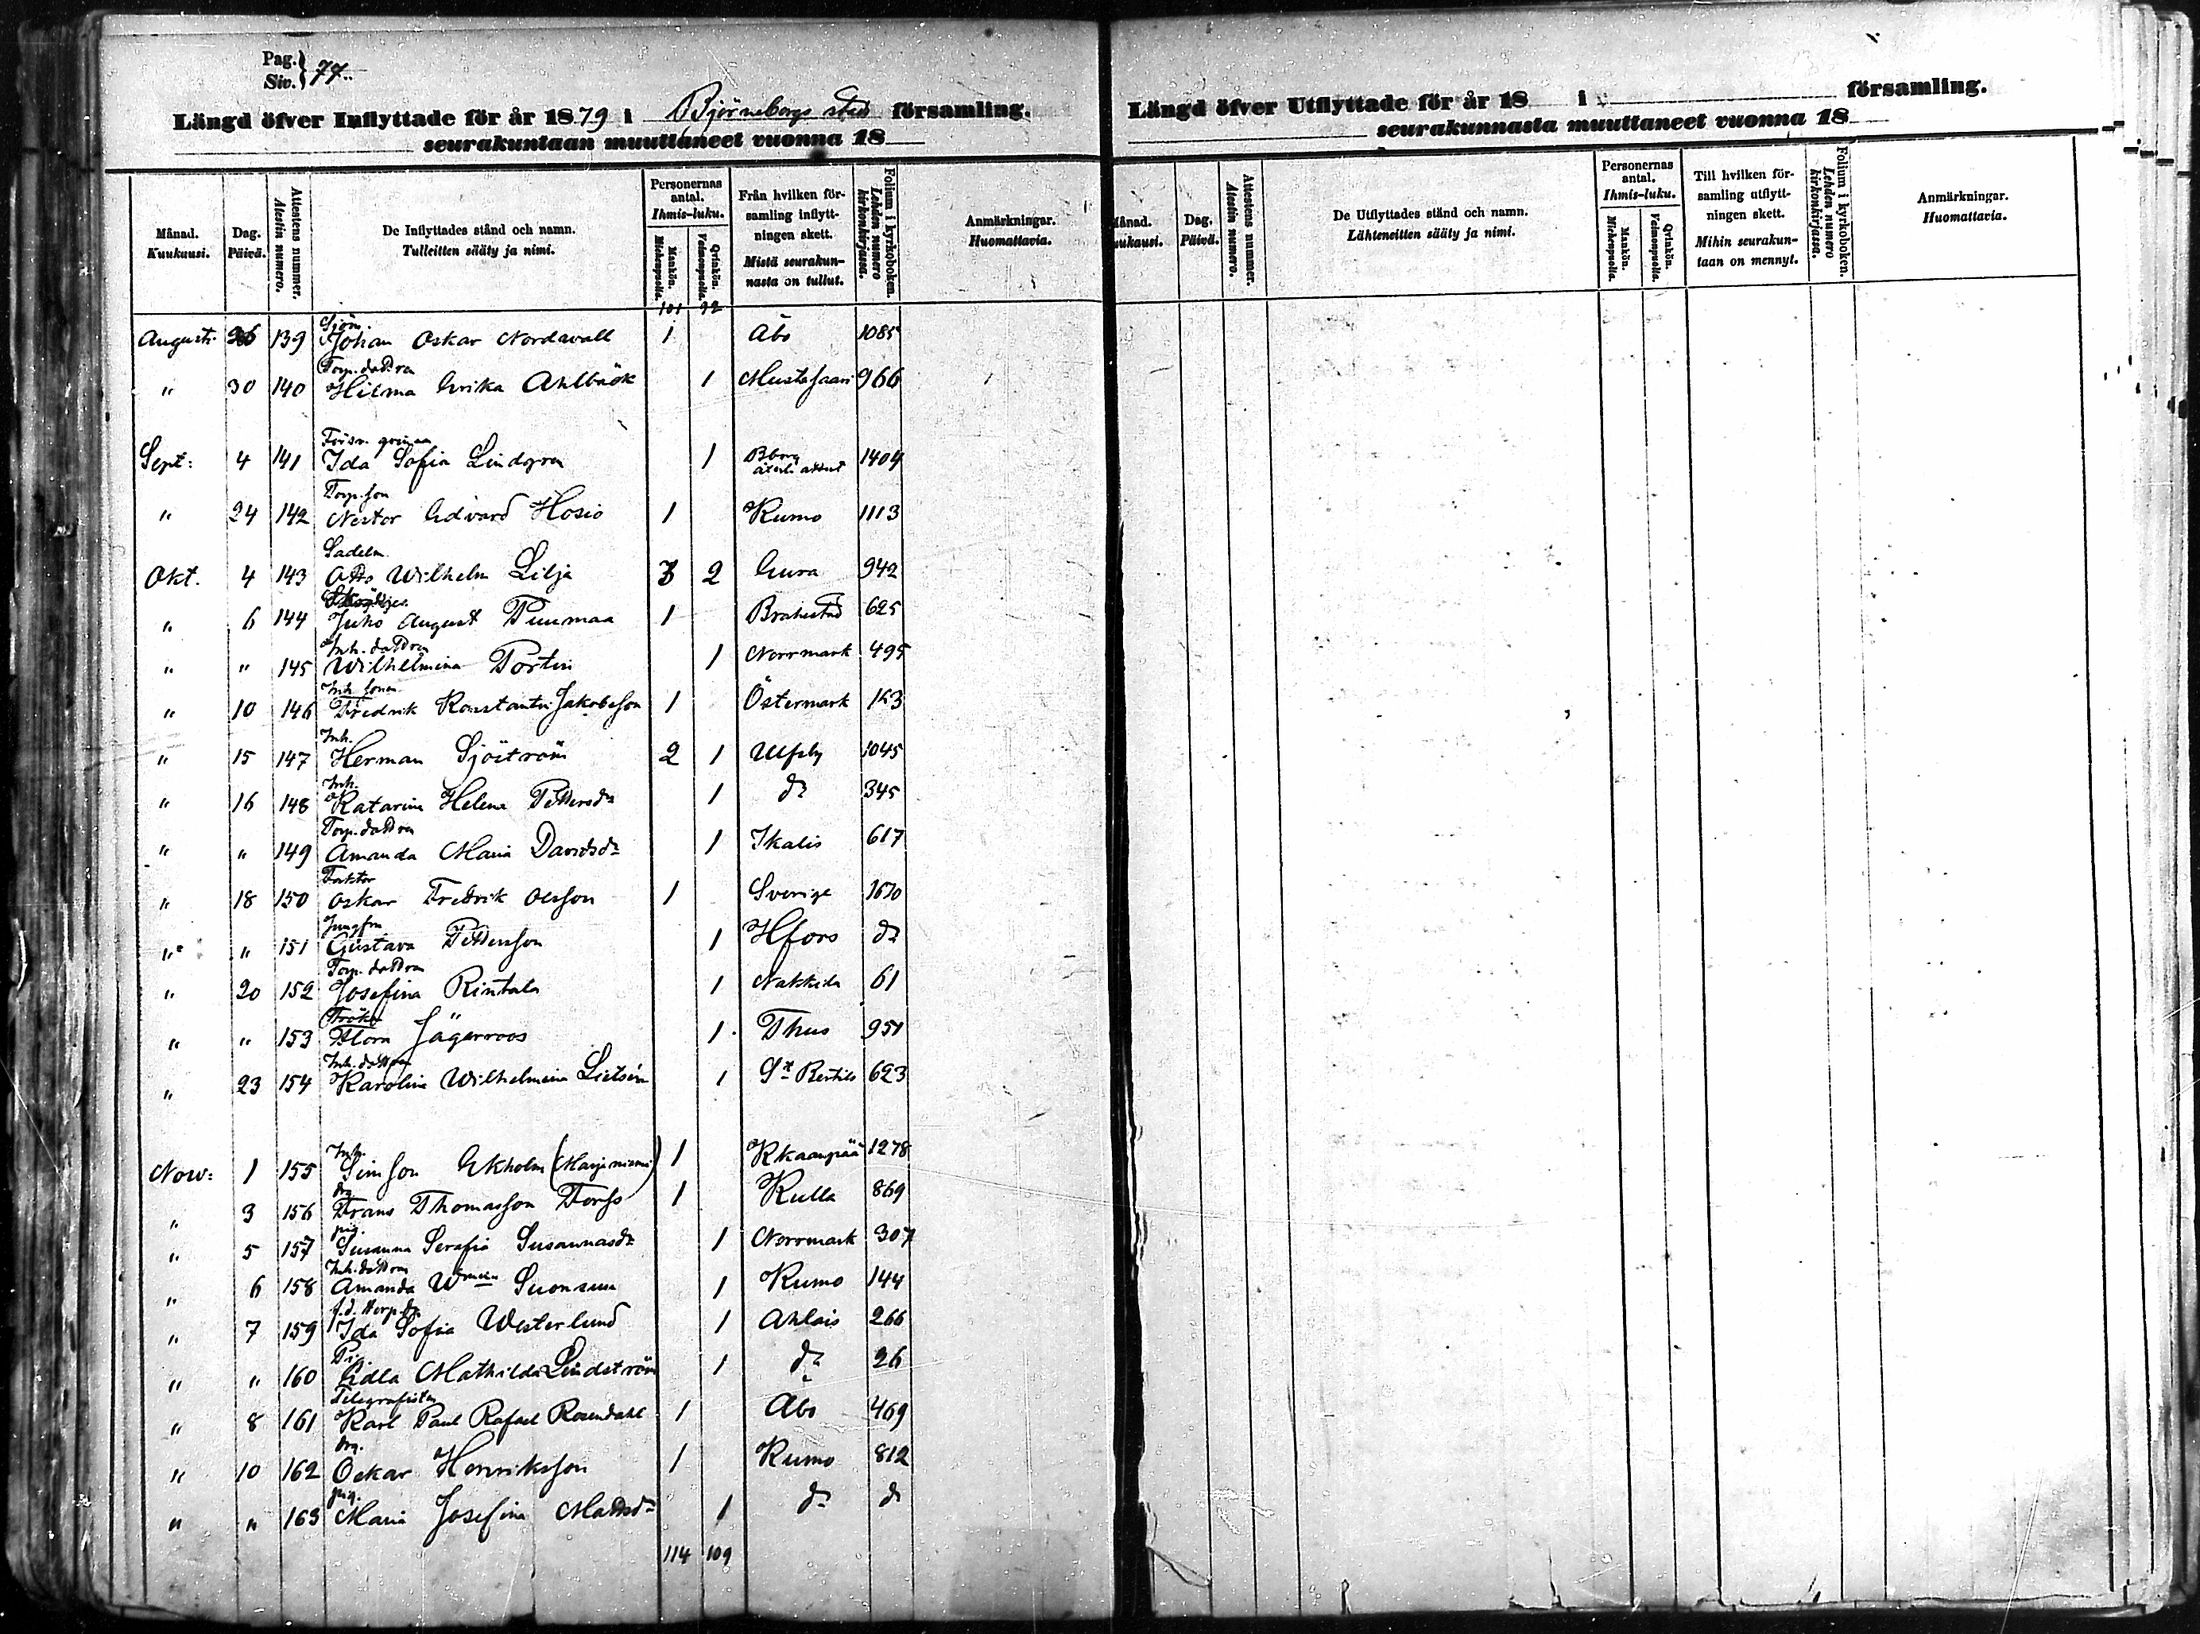 Pag. Siv. 77.
Längd öfver Inflyttade för år 1879 i Björneborgs stad församling.
seurakuntaan muuttaneet vuonna 18
Månad. Kuukausi. Dag. Päivä. Attestens nummer. Atestin numero. De Inflyttades stånd och namn. Tulleitten sääty ja nimi. Personernas antal. Ihmis-luku. Mankön. Miehenpuolia. Qvinkön. Vaimonpuolia. Från hvilken församling inflyttningen skett. Mistä seurakunnasta on tullut. Folium i kyrkoboken. Lehden numero kirkonkirjassa. Anmärkningar. Huomattavia.
101 92
Sjöm.
Augusti 26 139 Johan Oskar Nordavall 1 Åbo 1085
Torp. dottren
" 30 140 Hilma Erika Ahlbäck 1 Mustasaari 966
Sept: 4 141 Ida Sofia Lindgren 1 Bborg 1404
Torp. son
" 24 142 Nestor Edvard Hosio 1 Kumo 1113
Sadelm.
Okt. 4 143 Otto Wilhelm Lilja 3 2 Eura 942
" 6 144 Juho August Tuumaa 1 Brahestad 625
Inh. dottren
" " 145 Wilhelmina Portin 1 Norrmark 495
Inh. sonen
" 10 146 Fredrik Konstantin Jakobsson 1 Östermark 123
Inh.
" 15 147 Herman Sjöström 2 1 Ulfsby 1045
Inh.
" 16 148 Katarina Helena Pettersdr 1 do 345
Torp. dottren
" " 149 Amanda Maria Davidsdr 1 Ikalis 617
Faktor
" 18 150 Oskar Fredrik Olsson 1 Sverige 1670
Jungfru
" " 151 Gustava Pettersson 1 Hfors do
Torp. dottren
" 20 152 Josefina Rintala 1 Nakkila 61
Fröken
" " 153 Flora Jägerroos 1 Thus 951
Inh. dottren
" 23 154 Karolina Wilhelmina Lietsén 1 St Bertils 623
Inh.
Nov: 1 155 Simson Ekholm (Marjaniemi) 1 Kkaanpää 1278
dr
" 3 156 Frans Thomasson Forss 1 Kulla 869
pig.
" 5 157 Susanna Serafia Susannasdr 1 Norrmark 307
Inh. dottren
" 6 158 Amanda Wmina Suonsuu 1 Kumo 144
f.d. torp. dr
" 7 159 Ida Sofia Westerlund 1 Ahlais 266
Pig.
" " 160 Edla Mathilda Lindström 1 do 26
Telegrafisten
" 8 161 Karl Paul Rafael Rosendahl 1 Åbo 469
drg.
" 10 162 Oskar Henriksson 1 Kumo 812
pig.
" " 163 Maria Josefina Mattsdr 1 do do
114 109
Längd öfver Utflyttade för år 18 i församling.
seurakunnasta muuttaneet vuonna 18
Månad. Kuukausi. Dag. Päivä. Attestens nummer. Atestin numero. De Utflyttades stånd och namn. Lähteneitten sääty ja nimi. Personernas antal. Ihmis-luku. Mankön. Miehenpuolia. Qvinkön. Vaimonpuolia. Till hvilken församling utflyttningen skett. Mihin seurakuntaan on mennyt. Folium i kyrkoboken. Lehden numero kirkonkirjassa. Anmärkningar. Huomattavia.